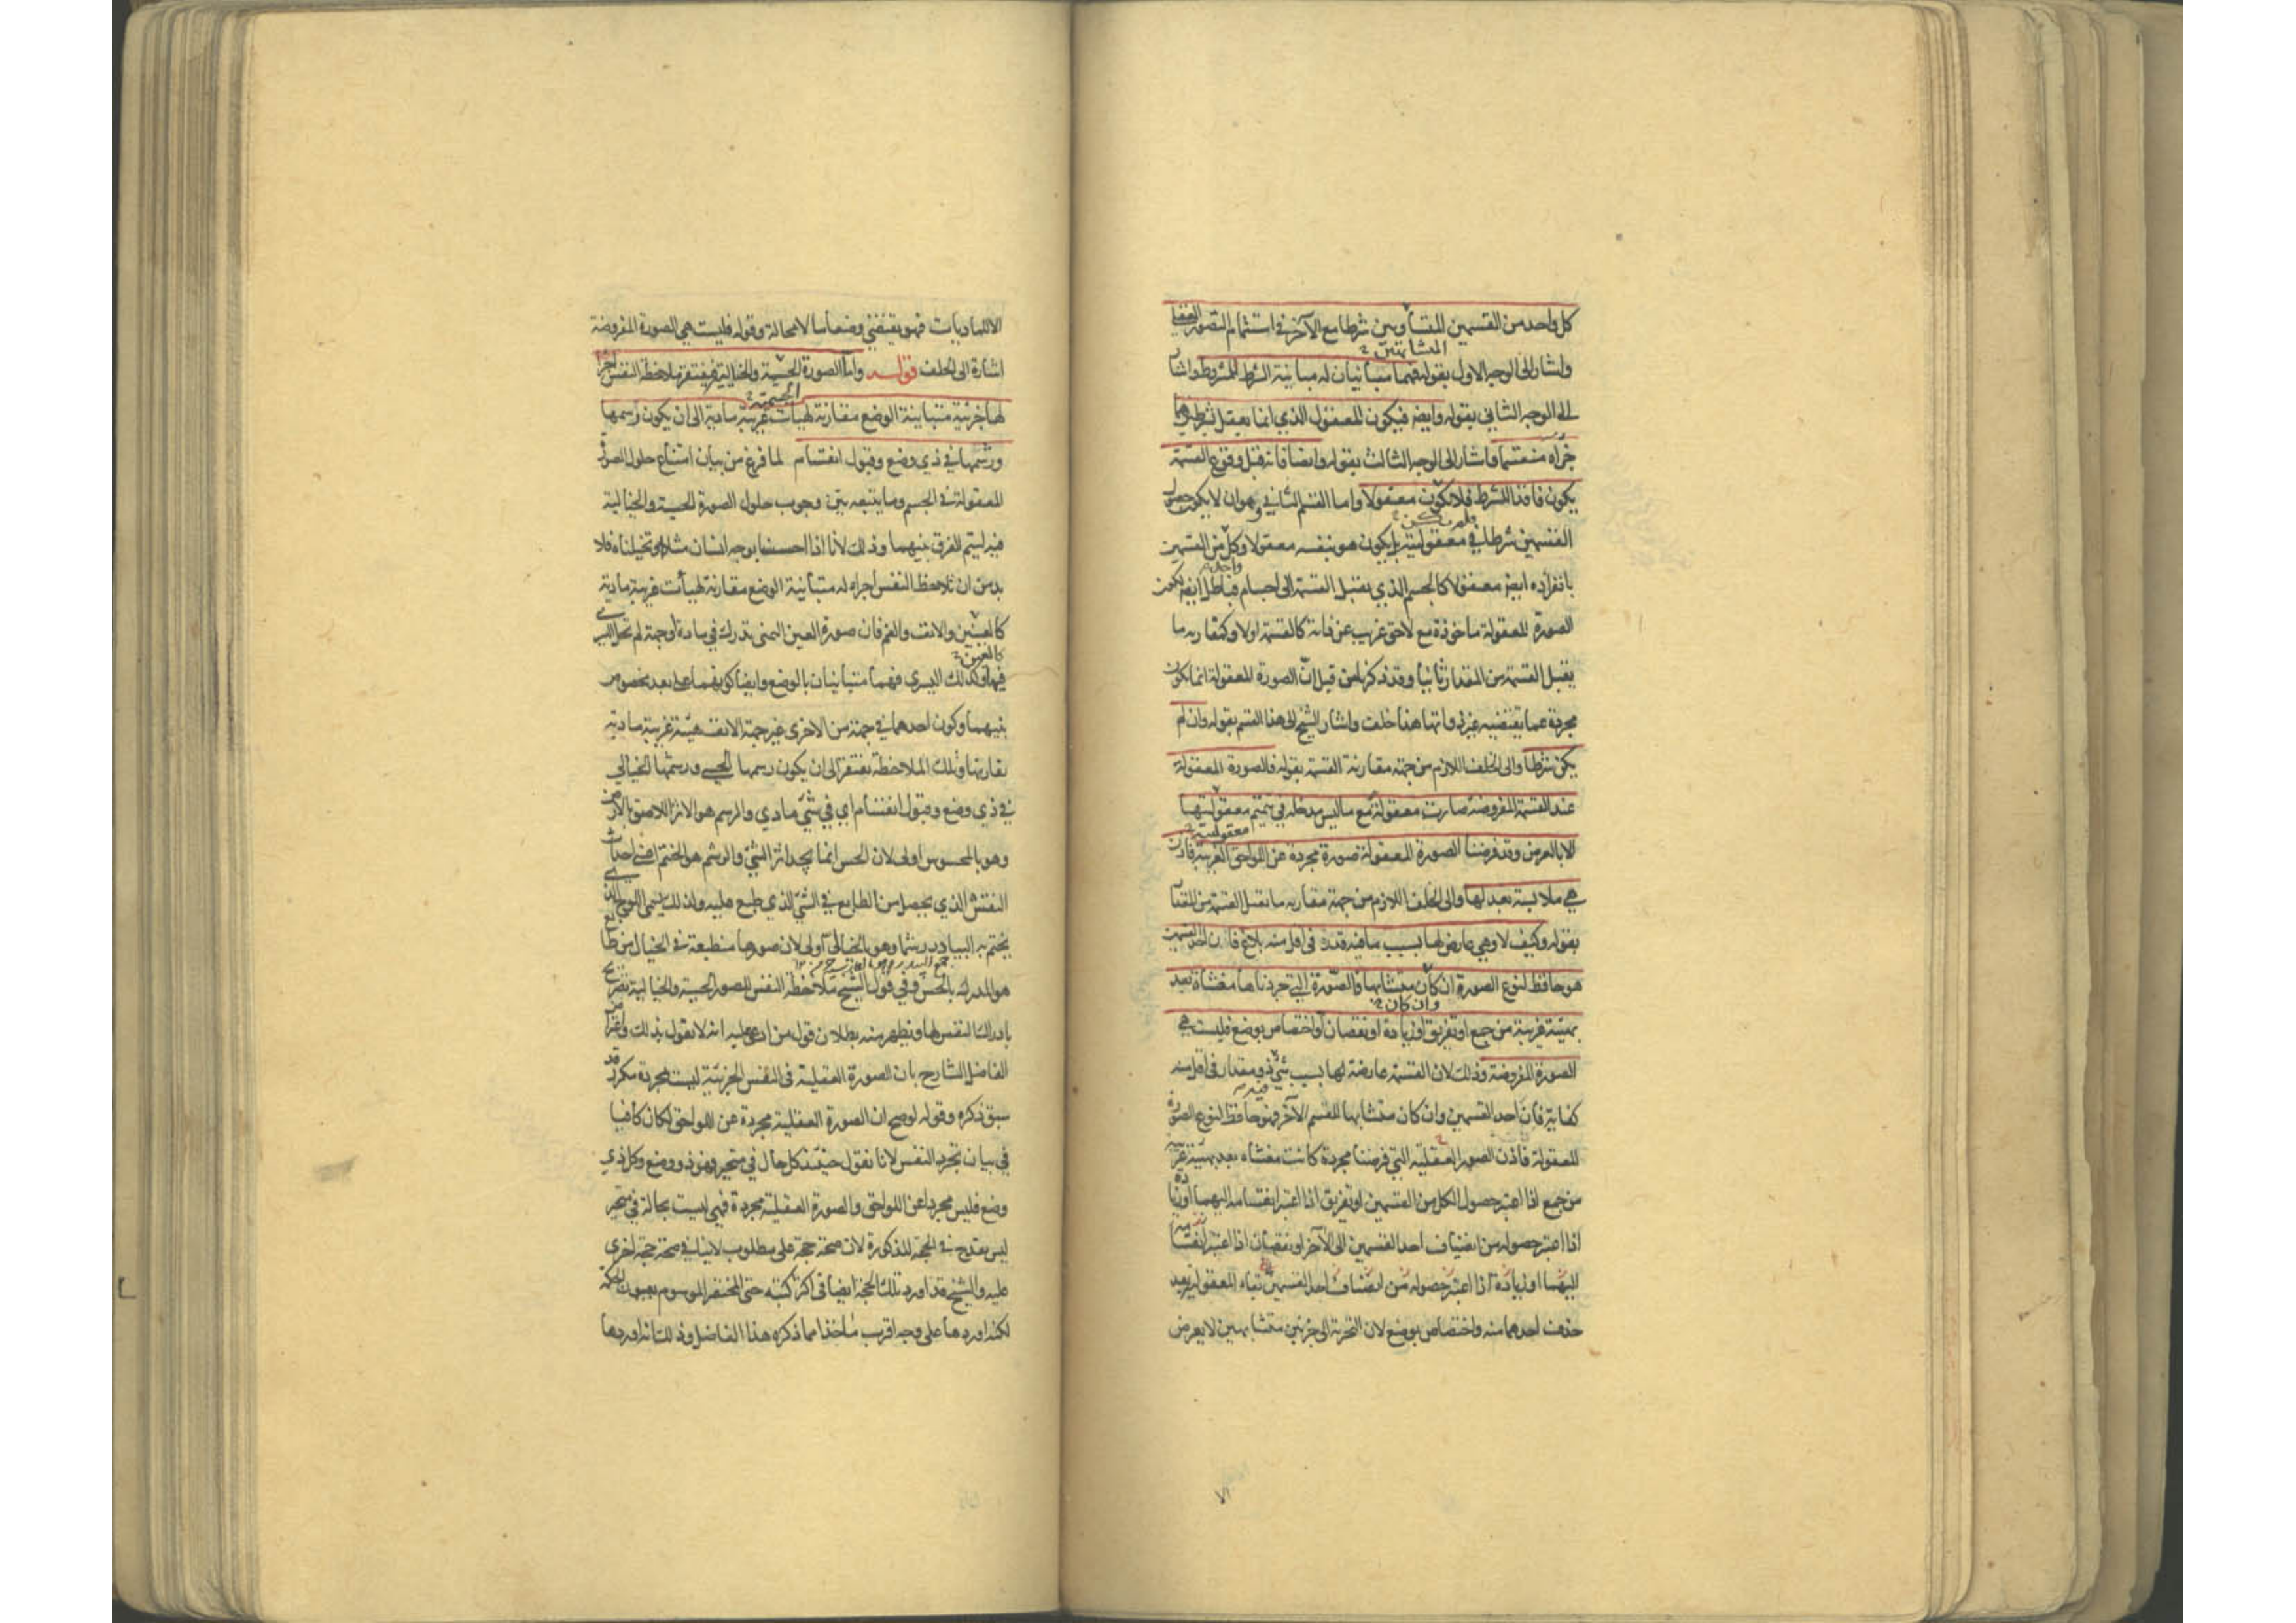 كل واحد من القسمين المتشابهين شرطا مع الآخر في استتمام التصور العقلي
واشار الى الوجه الاول بقوله فهما مباينان له مباينة الشرط للمشروط واشار
الى الوجه الثاني بقوله وايضا فيكون المعقول الذي انما يعقل بشرطين هما
جزآه منقسما واشار الى الوجه الثالث بقوله وايضا فانه قبل وقوع القسمة
يكون فاقدا للشرط فلا يكون معقولا واما القسم الثاني وهو ان لا يكون حصول
القسمين شرطا في معقوليته بل يكون هو بنفسه معقولا وكل من القسمين
بانفراده ايضا معقولا كالجسم الذي يقبل القسمة الى اجسام فباطل ايضا لكون
الصورة المعقولة ماخوذة مع لاحق غريب عن ذاته كالقسمة اولا وكمقارنه ما
يقبل القسمة من المقدار ثانيا وقد ذكرنا من قبل ان الصورة المعقولة انما تكون
مجردة عما يقتضيه غير ذواتها هذا خلف واشار الشيخ الى هذا القسم بقوله وان لم
يكن شرطا والى الخلف اللازم من جهة مقارنة القسمة بقوله فالصورة المعقولة
عند القسمة المفروضة صارت معقولة مع ما ليس مدخله في تتميم معقوليتها
الا بالعرض وقد فرضنا الصورة المعقولة صورة مجردة عن اللواحق الغريبة فاذن
هي ملابسة بعد لها والى الخلف اللازم من جهة مقارنه ما يقبل القسمة من المقدار
بقوله وكيف لا وهي عارض لها بسبب ما فيه قدر في اقل منه بلاغ فان احد القسمين
هو حافظ لنوع الصورة ان كان متشابها فالصورة التي جردناها مغشاة بعد
بهيئة غريبة من جمع او تفريق او زيادة او نقصان واختصاص بوضع فليست هي
الصورة المفروضة وذلك لان القسمة عارضة لها بسبب شيء ذو مقدار في اقل منه
كفاية فان احد القسمين وان كان متشابها للقسم الآخر فهو حافظ لنوع الصورة
المعقولة فاذن الصورة العقلية التي فرضنا مجردة كانت مغشاه بعد بهيئة غريبة
من جمع اذا اعتبر حصول الكل من القسمين او تفريق اذا اعتبر انقسامه اليهما او زيادة
اذا اعتبر حصوله من انضياف احد القسمين الى الآخر او نقصان اذا اعتبر انقسامه
اليهما او زيادة اذا اعتبر حصوله من انضياف احد القسمين بقاء المعقولية بعد
حذف احدهما منه واختصاص بوضع لان التجزية الى جزئين متشابهين لا يعرض
الا للماديات فهو يقتضي وضعا ما لا محالة وقوله فليست هي الصورة المفروضة
اشارة الى الخلف قوله واما الصورة الحسية والخيالية فيفتقر ملاحظة النفس اجزاء
لها جزئية متباينة الوضع مقارنة لهيآت غريبة مادية الى ان يكون رسمها
ورشمها في ذي وضع وقبول انقسام لما فرغ من بيان امتناع حلول الصورة
المعقولة في الجسم وما يتبعه بين وجوب حلول الصورة الحسية والخيالية
فيه ليتم الفرق بينهما وذلك لأنا اذا احسسنا بوجه انسان مثلا او تخيلناه فلا
بد من ان تلاحظ النفس اجزاء له متباينة الوضع مقارنة لهيأت غريبة مادية
كالعينين والانف والفم فان صورة العين اليمنى تدرك في مادة او جهة لم تحل اليسرى
فيها وكذلك اليسرى فهما متباينان بالوضع وايضا كونهما على بعد مخصوص
بينهما وكون احدهما في جهة من الاخرى غير جهة الانف هيئة غريبة مادية
تقارنها وتلك الملاحظة تفتقر الى ان يكون رسمها الحسي ورشمها الخيالي
في ذي وضع وقبول انقسام اي في شيء مادي والرسم هو الاثر اللاصق بالارض
وهو بالمحسوس اولى لان الحس انما يجد اثر الشيء والرشم هو الختم اعني احداث
النقش الذي يحصل من الطابع في الشيء الذي طبع عليه ولذلك يسمى اللوح الذي
يختم به البيادر رشما وهو بالخيالي أولى لان صورها منطبعة في الخيال من طابع
هو المدرك بالحس وفي قول الشيخ ملاحظة النفس للصور الحسية والخيالية تصريح
بادراك النفس لها ويظهر منه بطلان قول من ادعى عليه انه لا يقول بذلك واعتراض
الفاضل الشارح بان الصورة العقلية في النفس الجزئية ليست بمجردة مكرر قد
سبق ذكره وقوله لو صح ان الصورة العقلية مجردة عن اللواحق لكان كافيا
في بيان تجرد النفس لانا نقول حينئذ كل حال في متحيز فهو ذو وضع وكل ذي
وضع فليس مجردا عن اللواحق والصورة العقلية مجردة فهي ليست بحالة في متحيز
ليس بقدح في الحجة المذكورة لان صحة حجة على مطلوب لا ينافي صحة حجة اخرى
عليه والشيخ قد اورد تلك الحجة ايضا في اكثر كتبه حتى المختصر الموسوم بعيون الحكمة
لكنه اوردها على وجه اقرب مأخذا مما ذكره هذا الفاضل وذلك انه اوردها